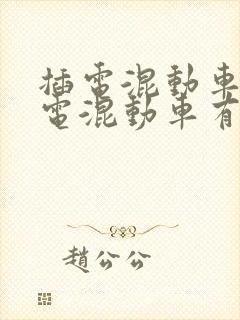 插電混動車
電混動車有
趙公公